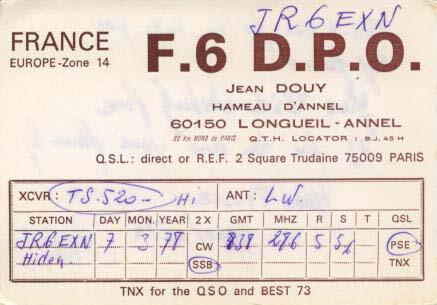 JR6EXN
FRANCE
EUROPE-Zone 14
F.6 D.P.O.
JEAN DOUY
HAMEAU D'ANNEL
60150 LONGUEIL - ANNEL
80 Km NORD de PARIS Q.T.H. LOCATOR : BJ. 45 H
Q.S.L: direct or R.E.F. 2 Square Trudaine 75009 PARIS
XCVR: TS.520- Hi ANT: LW.
STATION DAY MON. YEAR 2 X GMT MHZ R S T QSL
JR6EXN 7 3 78 CW 838 286 5 PSE
Hiden SSB TNX
TNX for the QSO and BEST 73